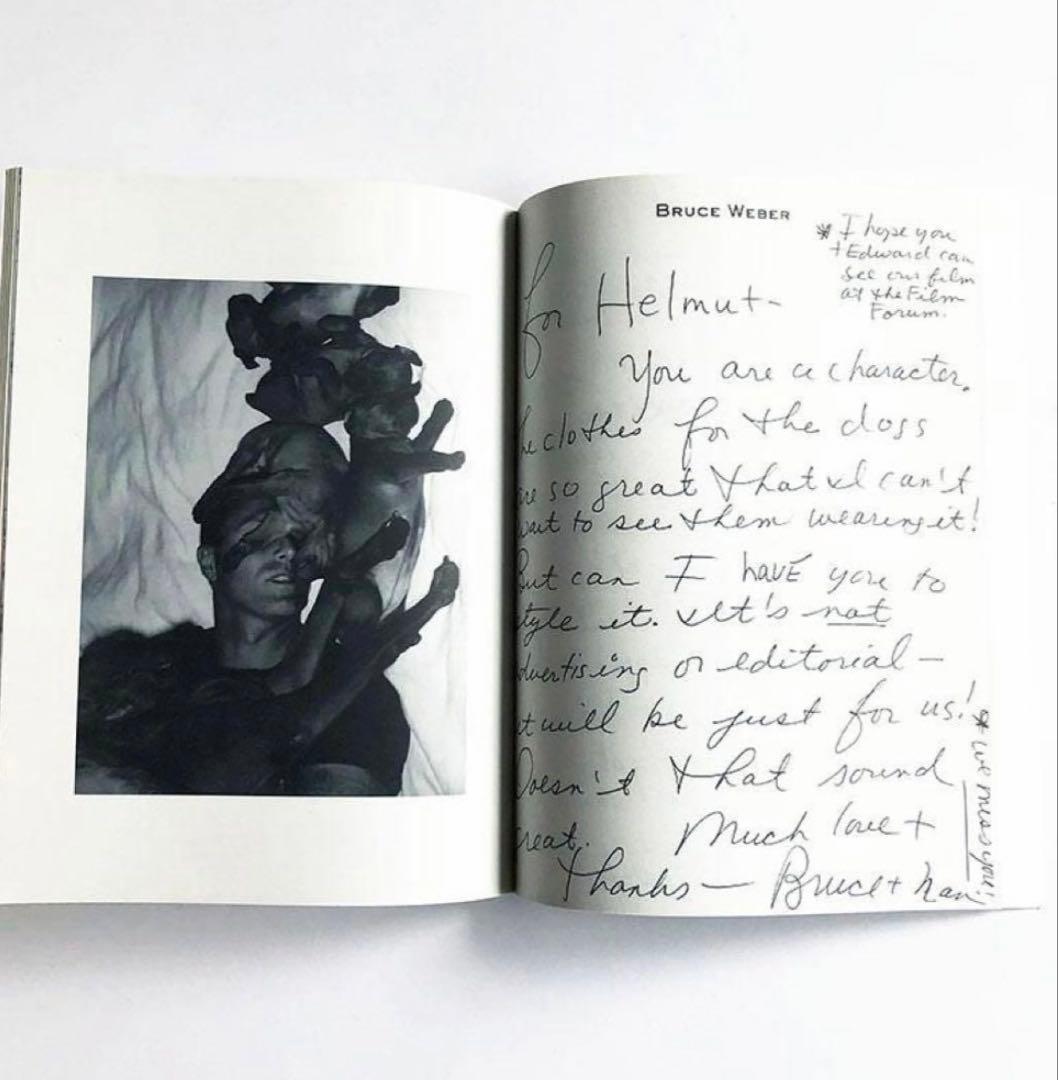 BRUCE WEBER
* I hope you
+ Edward can
see our film
at the Film
Forum.
for Helmut-
You are a character.
he clothes for the dogs
are so great that I can't
wait to see them wearing it!
But can I have you to
style it. It's not
dvertising or editorial —
it will be just for us!
Doesn't that sound
reat. Much love +
Thanks — Bruce + Nan
* we miss you!